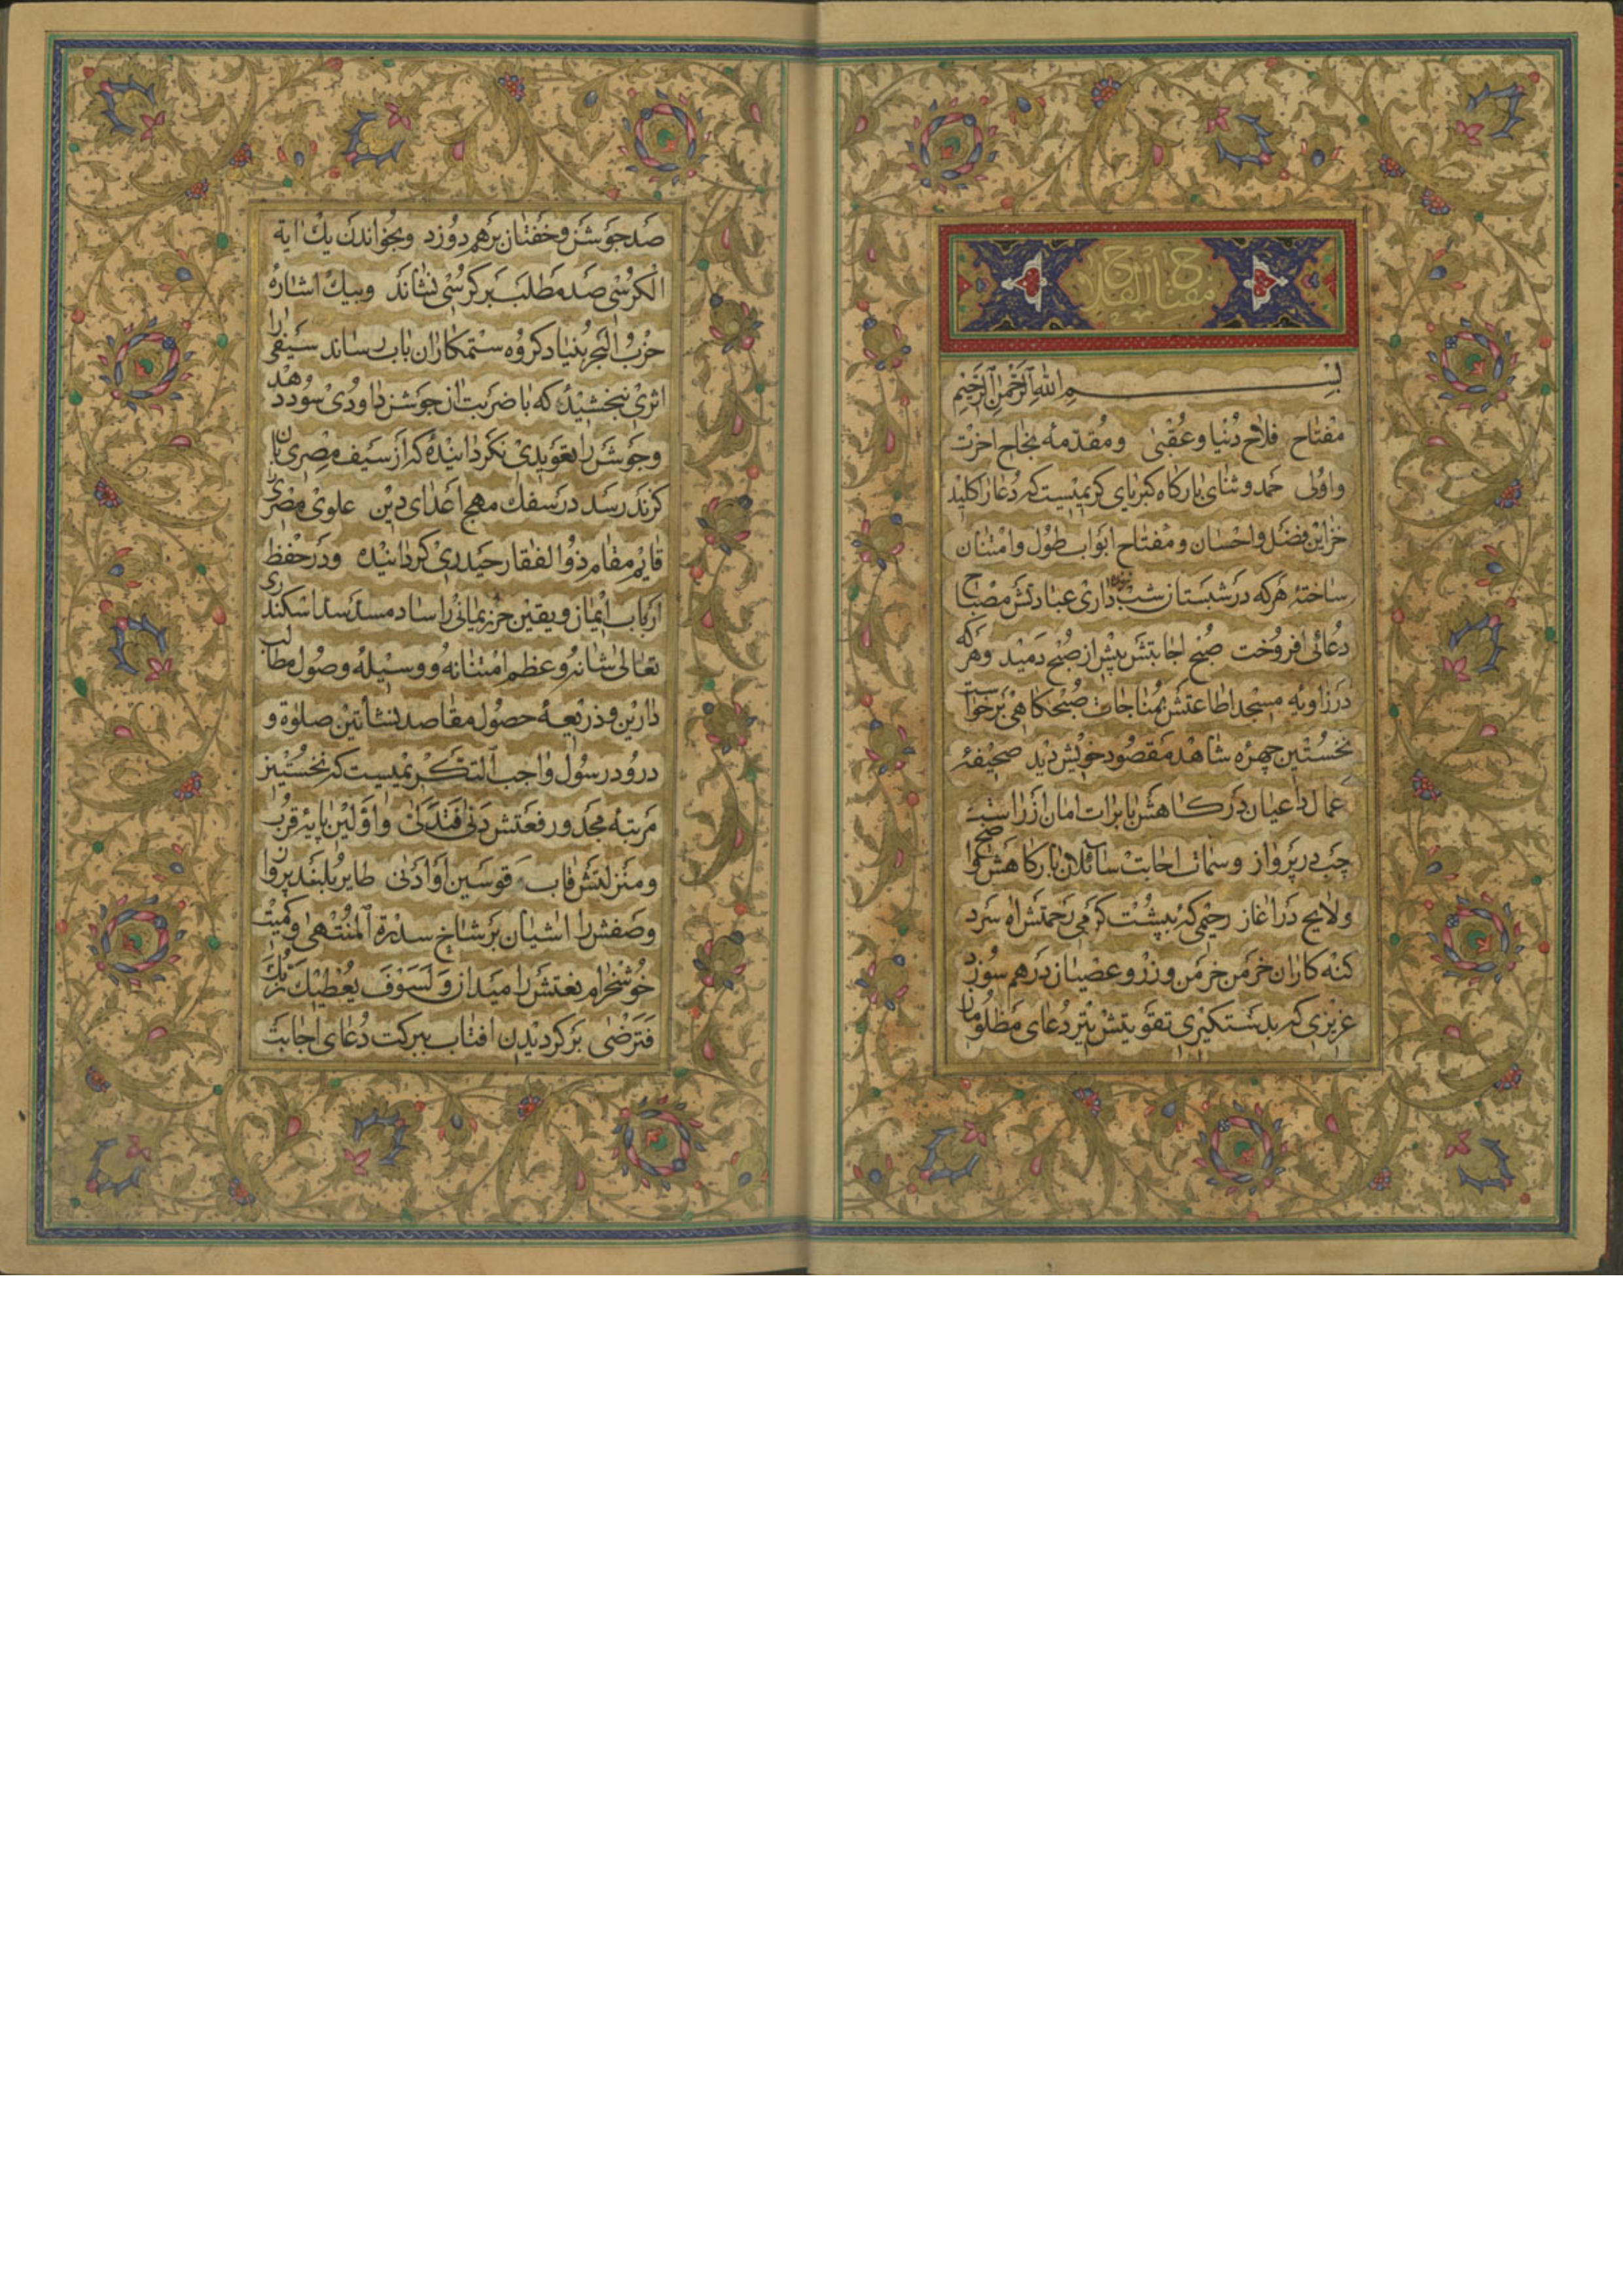 مفتاح الفلاح
بسم الله الرحمن الرحیم
مفتاح فلاح دنیا و عقبی و مقدمه نجاح اخرت
واولی حمد وثنای بارکاه کبریای کریمیست که دعارا کلید
خزاین فضل واحسان ومفتاح ابواب طول وامتنان
ساخته هرکه در شبستان شب زنده داری عبادتش مصباح
دعائی افروخت صبح اجابتش پیش از صبح دمید وهرکه
در زاویه مسجد اطاعتش بمناجات صبحکاهی برخواست
نخستین چهره شاهد مقصود خویش دید صحیفهٔ
عمال داعیان درکاهش با برات امان از راست
چپ در پرواز وسمات اجابت سائلان بارکاهش
ولایح در اغاز رحیمی که بپشت کرمی رحمتش اه سرد
کنه کاران خرمن خرمن وزر وعصیان درهم سوزد
عزیزی که بدستکیری تقویتش بتیر دعای مظلومان
صد جوشن وخفتان برهم دوزد وبخواندن یك ایة
الکرسی صد مطلب برکرسی نشاند وبیك اشاره
حزب البحر بنیاد کروه ستمکاران باب رساند سیفی را
اثری بخشیده که با ضربت ان جوشن داودی سود ندهد
وجوشن را تعویذی نکردانیده که از سیف مصری بان
کزند رسد در سفك مهج اعدای دین علوی مصری را
قایم مقام ذوالفقار حیدری کردانیده ودر حفظ
ارباب ایمان ویقین حرز یمانی را ساد مسد سد اسکندری
تعالی شانه وعظم امتنانه ووسیله وصول مطالب
دارین وذریعه حصول مقاصد نشأتین صلوة و
درود رسول واجب التکریمیست که نخستین
مرتبه مجد ورفعتش دنی فتدلی واولین پایه قرب
ومنزلتش قاب قوسین او ادنی طایر بلند پرواز
وصفش را اشیان بر شاخ سدرة المنتهی وکمیت
خوشخرام نعتش را میدان ولسوف یعطیك ربك
فترضی برکردیدن افتاب ببرکت دعای اجابت